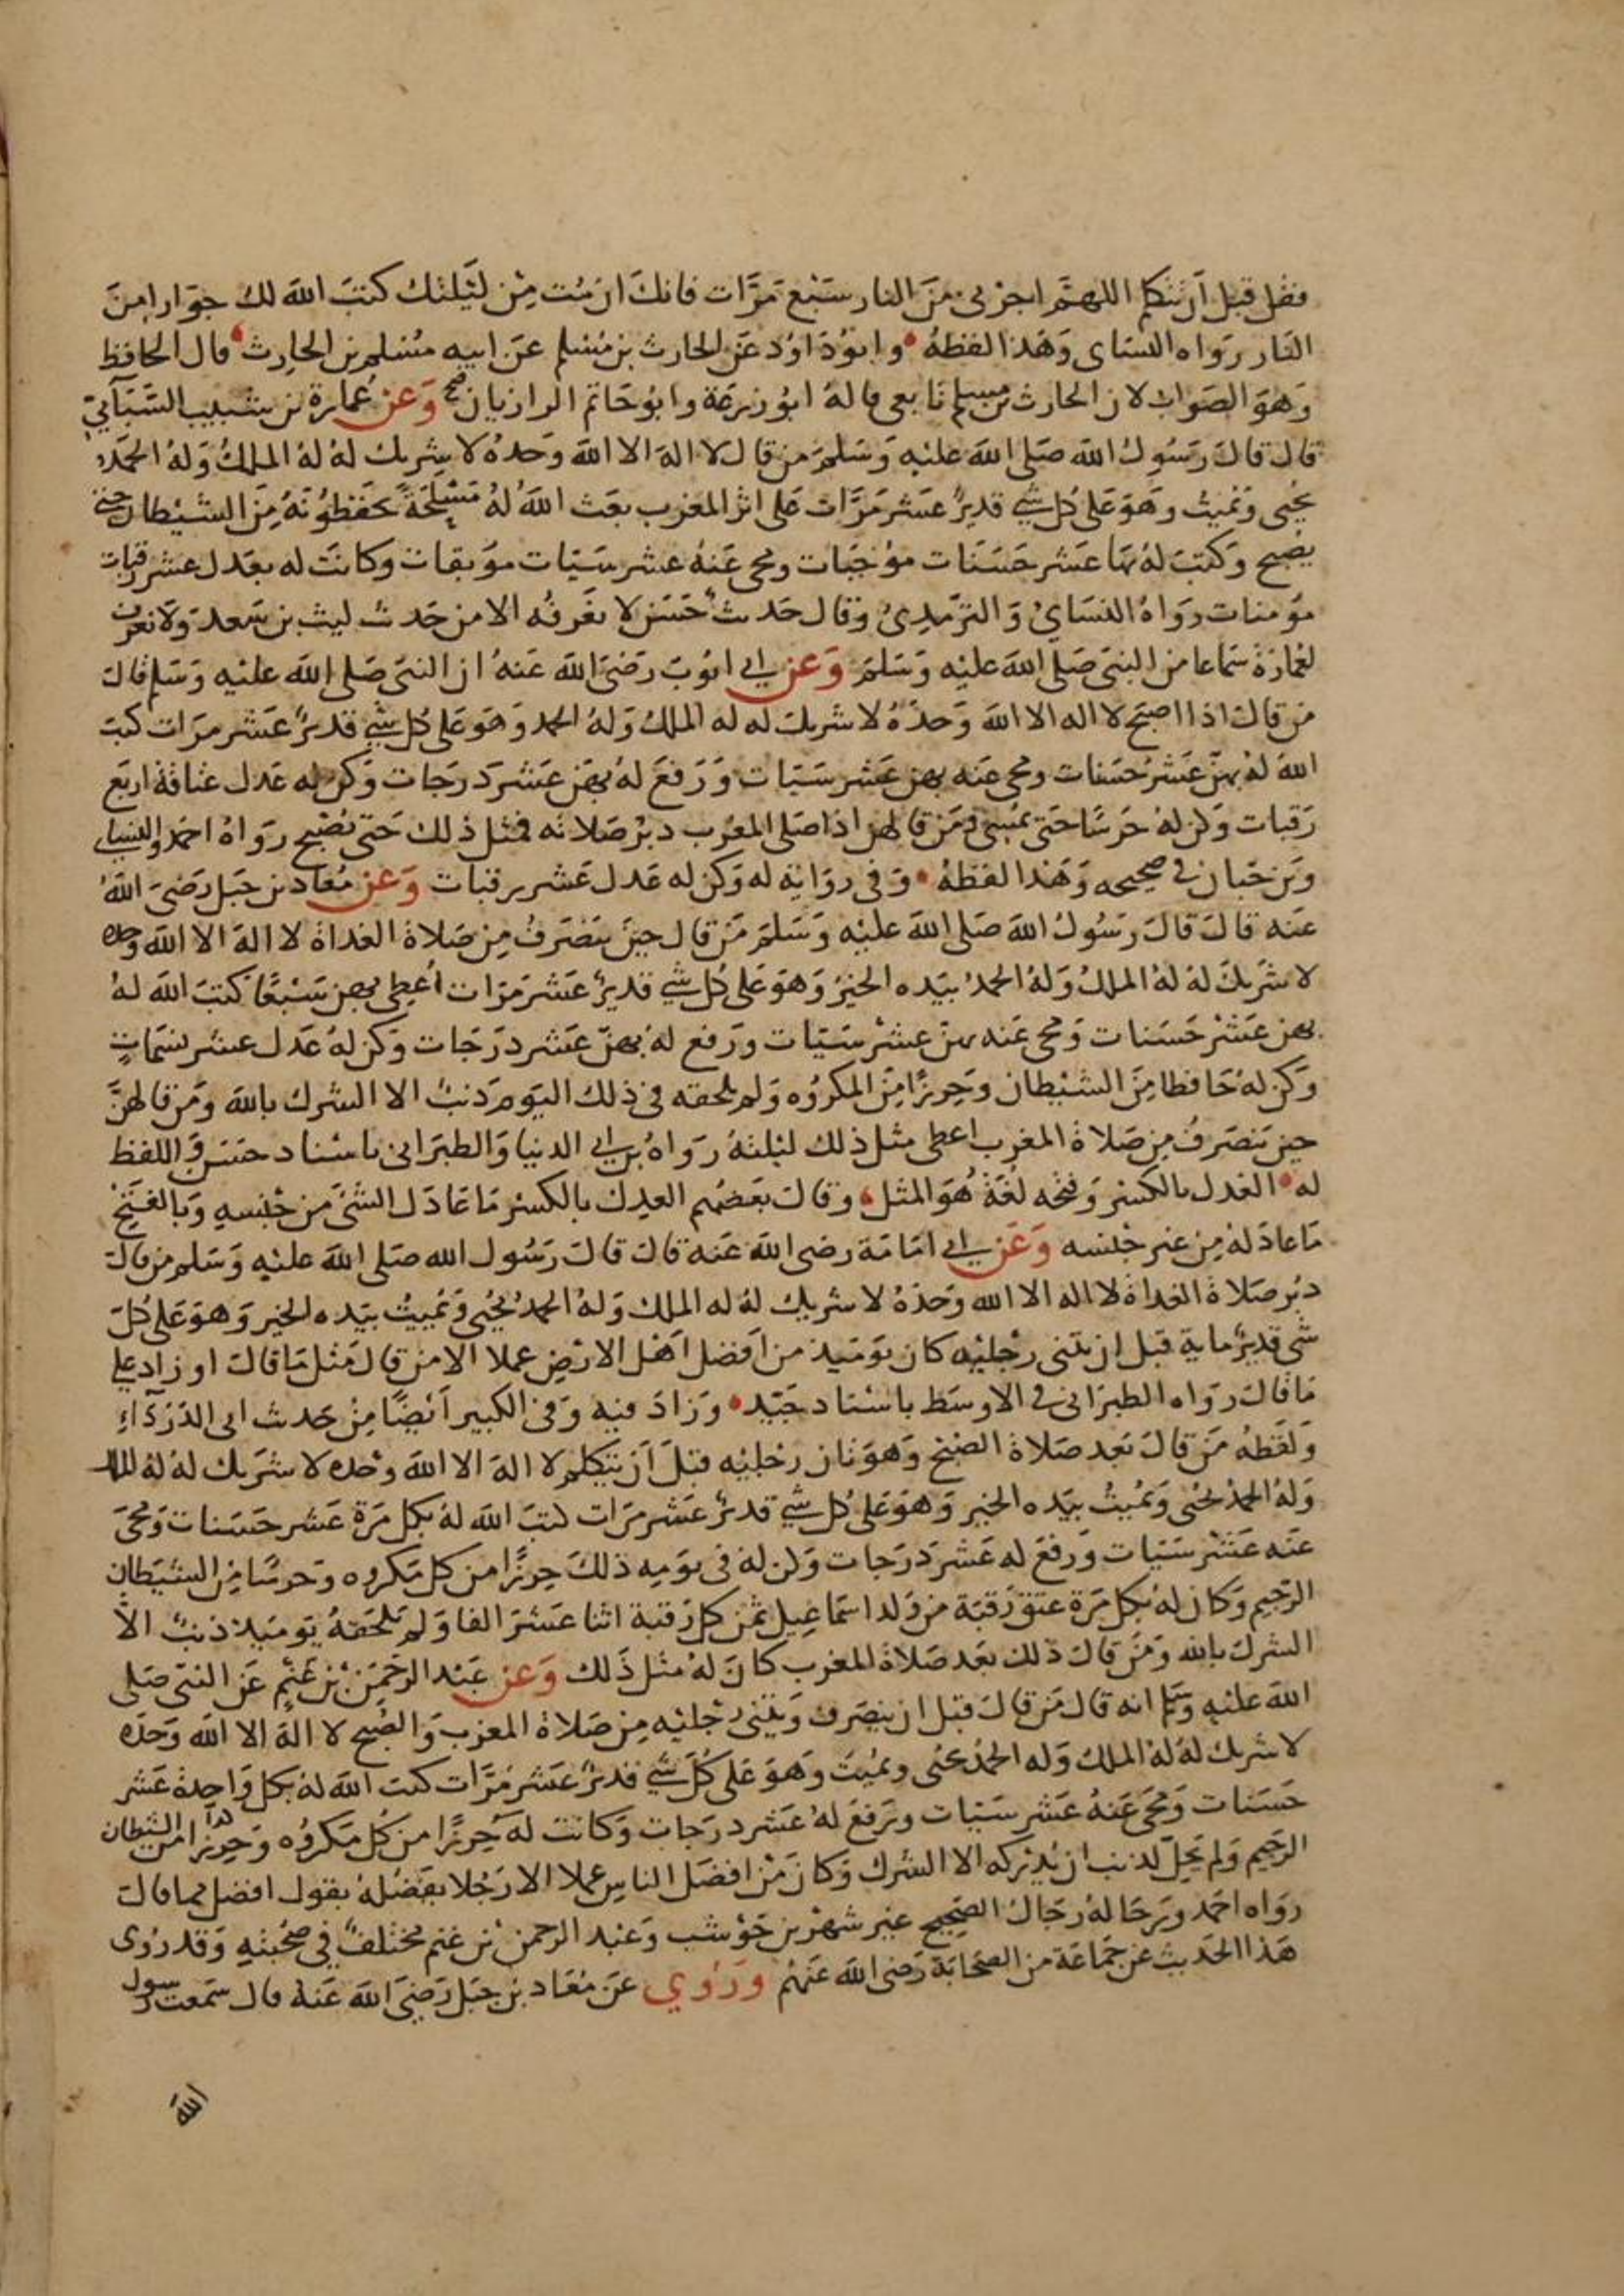 فقل قبل أن تتكلم اللهم اجرني من النار سبع مرات فانك ان مت من ليلتك كتب الله لك جوارا من
النار رواه النساى وهذا لفظه وابوداود عن الحارث بن مسلم عن ابيه مسلم بن الحارث قال الحافظ
وهو الصواب لان الحارث بن مسلم تابعى قاله ابو زرعة وابو حاتم الرازيان وعن عمارة بن شبيب السبآيى
قال قال رسول الله صلى الله عليه وسلم من قال لا اله الا الله وحده لا شريك له له الملك وله الحمد
يحيى ويميت وهو على كل شي قدير عشر مرات على اثر المغرب بعث الله له مسلحة يحفظونه من الشيطان حتى
يصبح وكتب له بها عشر حسنات موجبات ومحى عنه عشر سيات موبقات وكانت له بعدل عشر رقبات
مومنات رواه النساى والترمدى وقال حديث حسن لا نعرفه الا من حديث ليث بن سعد ولا نعرف
لعمارة سماعا من النبى صلى الله عليه وسلم وعن ابي ايوب رضى الله عنه ان النبى صلى الله عليه وسلم قال
من قال اذا اصبح لا اله الا الله وحده لا شريك له له الملك وله الحمد وهو على كل شي قدير عشر مرات كتب
الله له بهن عشر حسنات ومحى عنه بهن عشر سيات ورفع له بهن عشر درجات وكن له عدل عتاقة اربع
رقبات وكن له حرسا حتى يمسى ومن قالهن اذا صلى المغرب دبر صلاته فمثل ذلك حتى يصبح رواه احمد والنساى
وبن حبان فى صحيحه وهذا لفظه وفى رواية له وكن له عدل عشر رقبات وعن معاد بن جبل رضى الله
عنه قال قال رسول الله صلى الله عليه وسلم من قال حين ينصرف من صلاة الغداة لا اله الا الله وحده
لا شريك له له الملك وله الحمد بيده الخير وهو على كل شي قدير عشر مرات اعطى بهن سبعا كتب الله له
بهن عشر حسنات ومحى عنه بهن عشر سيات ورفع له بهن عشر درجات وكن له عدل عشر نسمات
وكن له حافظا من الشيطان وحرزا من المكروه ولم يلحقه فى ذلك اليوم دنب الا الشرك بالله ومن قالهن
حين ينصرف من صلاة المغرب اعطى مثل ذلك ليلته رواه بن ابي الدنيا والطبرانى باسناد حسن واللفظ
له العدل بالكسر وفتحه لغة هو المثل وقال بعضهم العدل بالكسر ما عادل الشى من جنسه وبالفتح
ما عادله من غير جنسه وعن ابي امامة رضى الله عنه قال قال رسول الله صلى الله عليه وسلم من قال
دبر صلاة الغداة لا اله الا الله وحده لا شريك له له الملك وله الحمد يحيى ويميت بيده الخير وهو على كل
شى قدير ماية قبل ان يثنى رجليه كان يوميذ من افضل اهل الارض عملا الا من قال مثل ما قال او زاد على
ما قال رواه الطبرانى فى الاوسط باسناد جيد وزاد فيه وفى الكبير ايضا من حديث ابى الدردآء
ولفظه من قال بعد صلاة الصبح وهو ثان رجليه قبل أن يتكلم لا اله الا الله وحده لا شريك له له الملك
وله الحمد يحيى ويميت بيده الخير وهو على كل شي قدير عشر مرات كتب الله له بكل مرة عشر حسنات ومحى
عنه عشر سيات ورفع له عشر درجات وكن له فى يومه ذلك حرزا من كل مكروه وحرسا من الشيطان
الرجيم وكان له بكل مرة عتق رقبة من ولد اسماعيل ثمن كل رقبة اثنا عشر الفا ولم يلحقه يوميذ ذنب الا
الشرك بالله ومن قال ذلك بعد صلاة المغرب كان له مثل ذلك وعن عبد الرحمن بن غنم عن النبى صلى
الله عليه وسلم انه قال من قال قبل ان ينصرف ويثنى رجليه من صلاة المغرب والصبح لا اله الا الله وحده
لا شريك له له الملك وله الحمد يحيى ويميت وهو على كل شي قدير عشر مرات كتب الله له بكل واحدة عشر
حسنات ومحى عنه عشر سيات ورفع له عشر درجات وكانت له حرزا من كل مكروه وحرزا من الشيطان
الرجيم ولم يحل لدنب ان يدركه الا الشرك وكان من افضل الناس عملا الا رجلا يفضله يقول افضل مما قال
رواه احمد ورجاله رجال الصحيح غير شهر بن حوشب وعبد الرحمن بن غنم مختلف فى صحبته وقد روى
هذا الحديث عن جماعة من الصحابة رضى الله عنهم وروي عن معاد بن جبل رضى الله عنه قال سمعت رسول
الله